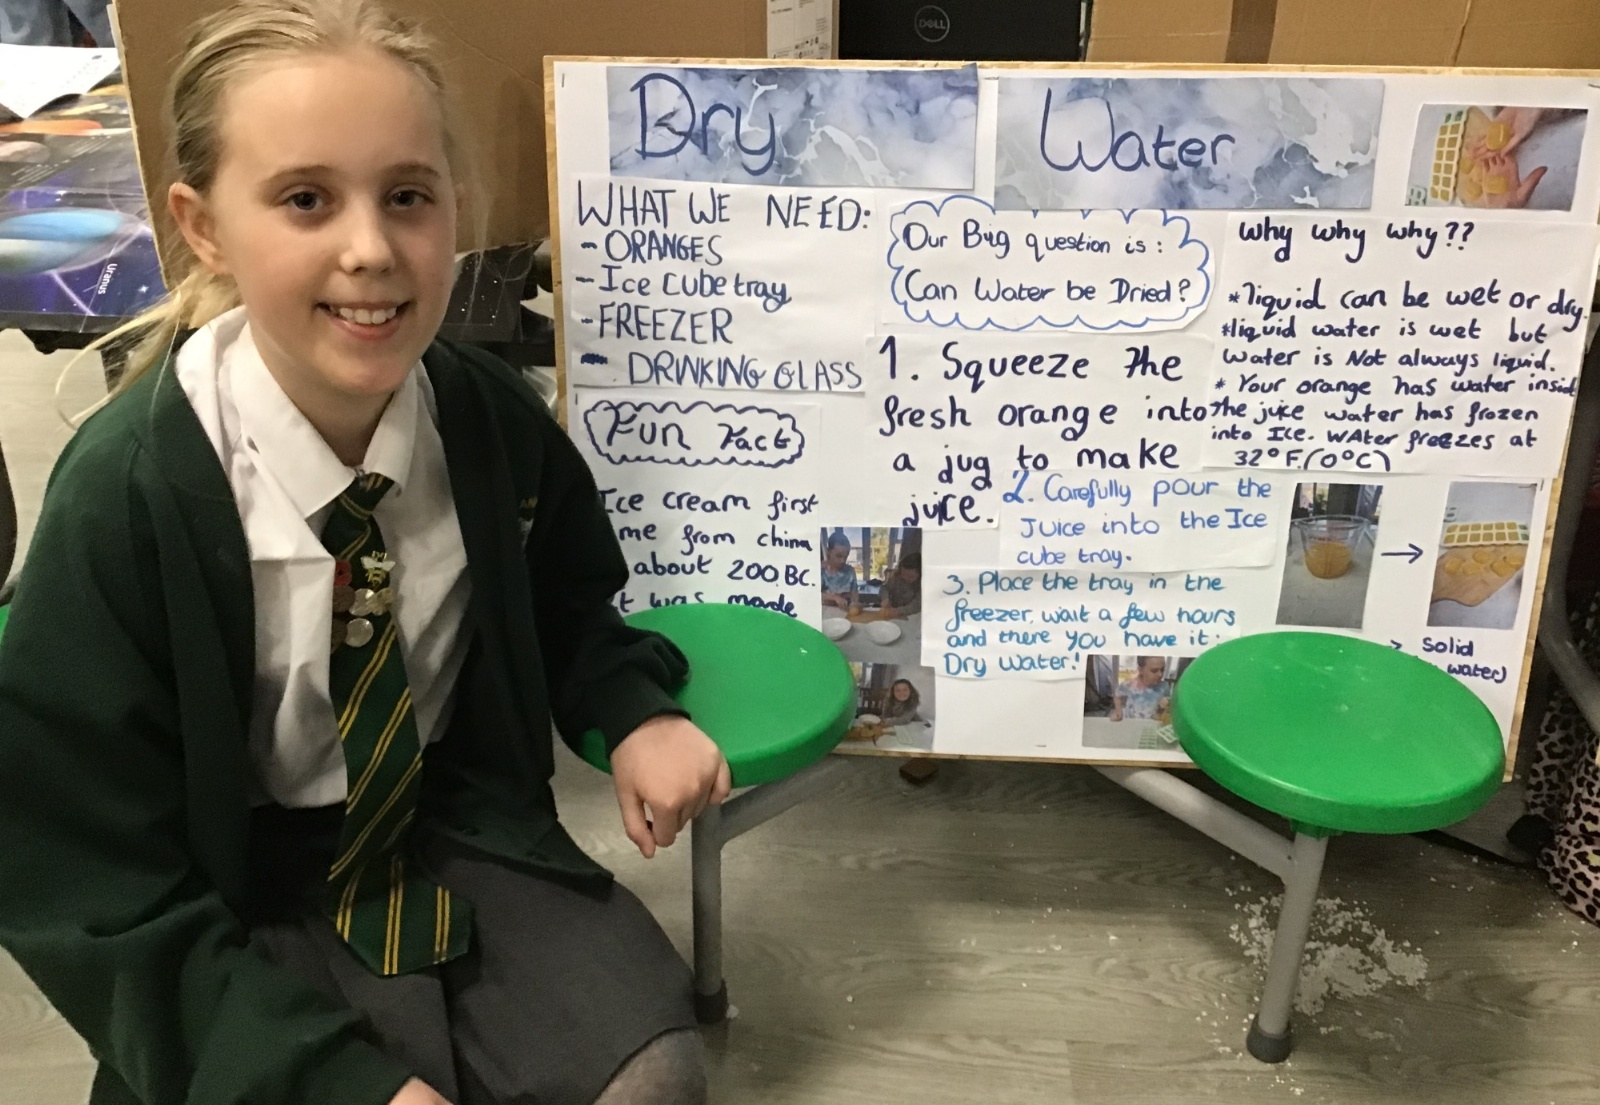 DELL
Uranus
Dry Water
WHAT WE NEED:
- ORANGES
- Ice cube tray
- FREEZER
- DRINKING GLASS
Fun Fact
Ice cream first
me from china
about 200 BC.
t was made
Our Big question is:
Can Water be Dried?
1. Squeeze the
fresh orange into
a jug to make
juice.
2. Carefully pour the
Juice into the Ice
cube tray.
3. Place the tray in the
freezer, wait a few hours
and there you have it:
Dry Water!
Why why why??
* liquid can be wet or dry.
* liquid water is wet but
water is Not always liquid.
* Your orange has water insid
the juice water has frozen
into Ice. WAter freezes at
32°F. (0°C)
→
> Solid
water)